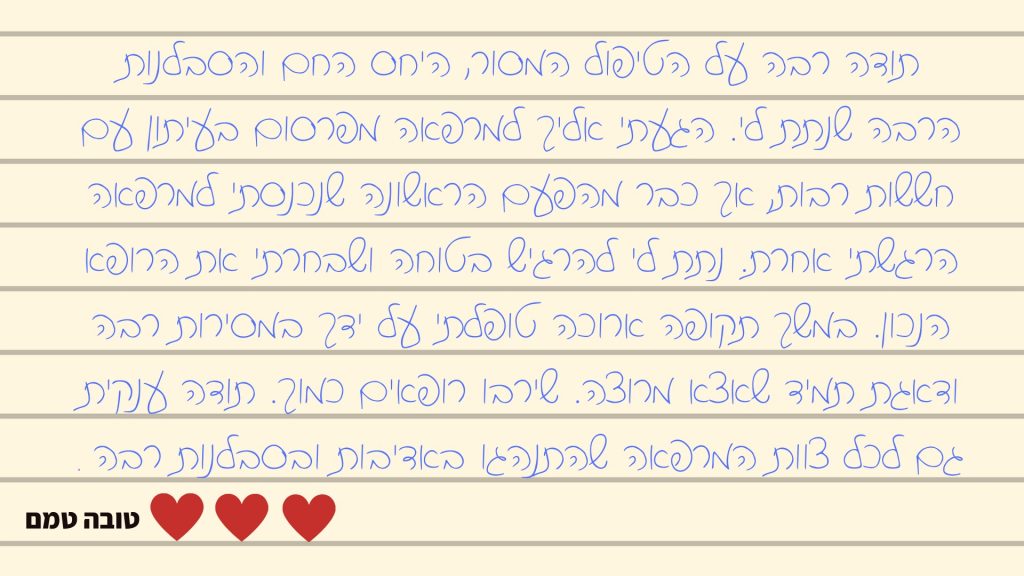 תודה רבה על הטיפול המסור, היחס החם והסבלנות
הרבה שנתת לי. הגעתי אליך למרפאה מפרסום בעיתון עם
חששות רבות, אך כבר מהפעם הראשונה שנכנסתי למרפאה
הרגשתי אחרת. נתת לי להרגיש בטוחה ושבחרתי את הרופא
הנכון. במשך תקופה ארוכה טופלתי על ידך במסירות רבה
ודאגת תמיד שאצא מרוצה. שירבו רופאים כמוך. תודה ענקית
גם לכל צוות המרפאה שהתנהגו באדיבות ובסבלנות רבה .
טובה טמם